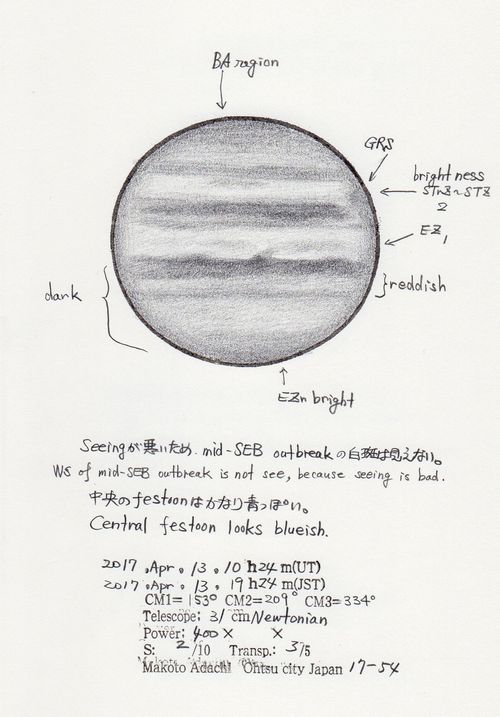 BA region
GRS
brightness
STrZ~STZ
2
EZ
1
reddish
dark
EZn bright
Seeingが悪いため. mid-SEB outbreakの白斑は見えない。
WS of mid-SEB outbreak is not see, because seeing is bad.
中央のfestoonはかなり青っぽい。
Central festoon looks blueish.
2017.Apr. 13. 10 h24 m(UT)
2017.Apr. 13. 19 h24 m(JST)
CM1=153° CM2=209° CM3=334°
Telescope: 31 cm Newtonian
Power: 400× ×
S: 2/10 Transp.: 3/5
Makoto Adachi Ohtsu city Japan 17-54